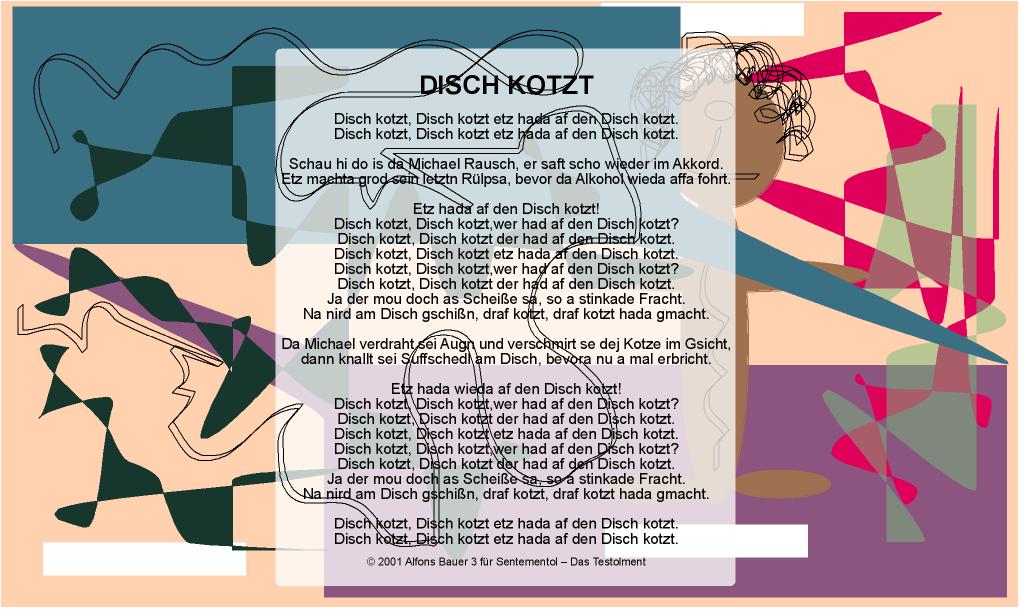 DISCH KOTZT
Disch kotzt, Disch kotzt etz hada af den Disch kotzt.
Disch kotzt, Disch kotzt etz hada af den Disch kotzt.
Schau hi do is da Michael Rausch, er saft scho wieder im Akkord.
Etz machta grod sein letztn Rülpsa, bevor da Alkohol wieda affa fohrt.
Etz hada af den Disch kotzt!
Disch kotzt, Disch kotzt,wer had af den Disch kotzt?
Disch kotzt, Disch kotzt der had af den Disch kotzt.
Disch kotzt, Disch kotzt etz hada af den Disch kotzt.
Disch kotzt, Disch kotzt,wer had af den Disch kotzt?
Disch kotzt, Disch kotzt der had af den Disch kotzt.
Ja der mou doch as Scheiße sa, so a stinkade Fracht.
Na nird am Disch gschißn, draf kotzt, draf kotzt hada gmacht.
Da Michael verdraht sei Augn und verschmirt se dej Kotze im Gsicht,
dann knallt sei Suffschedl am Disch, bevora nu a mal erbricht.
Etz hada wieda af den Disch kotzt!
Disch kotzt, Disch kotzt,wer had af den Disch kotzt?
Disch kotzt, Disch kotzt der had af den Disch kotzt.
Disch kotzt, Disch kotzt etz hada af den Disch kotzt.
Disch kotzt, Disch kotzt,wer had af den Disch kotzt?
Disch kotzt, Disch kotzt der had af den Disch kotzt.
Ja der mou doch as Scheiße sa, so a stinkade Fracht.
Na nird am Disch gschißn, draf kotzt, draf kotzt hada gmacht.
Disch kotzt, Disch kotzt etz hada af den Disch kotzt.
Disch kotzt, Disch kotzt etz hada af den Disch kotzt.
© 2001 Alfons Bauer 3 für Sentementol – Das Testolment